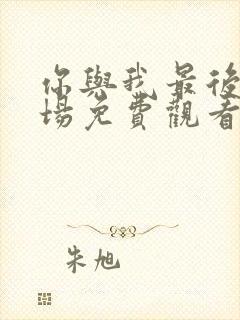 你與我最後
場免費觀看
朱旭